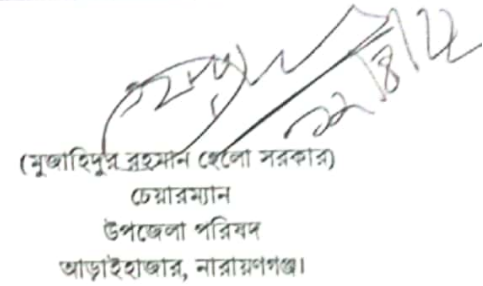 ২২/৪/২২
(মুজাহিদুর রহমান হেলো সরকার)
চেয়ারম্যান
উপজেলা পরিষদ
আড়াইহাজার, নারায়ণগঞ্জ।